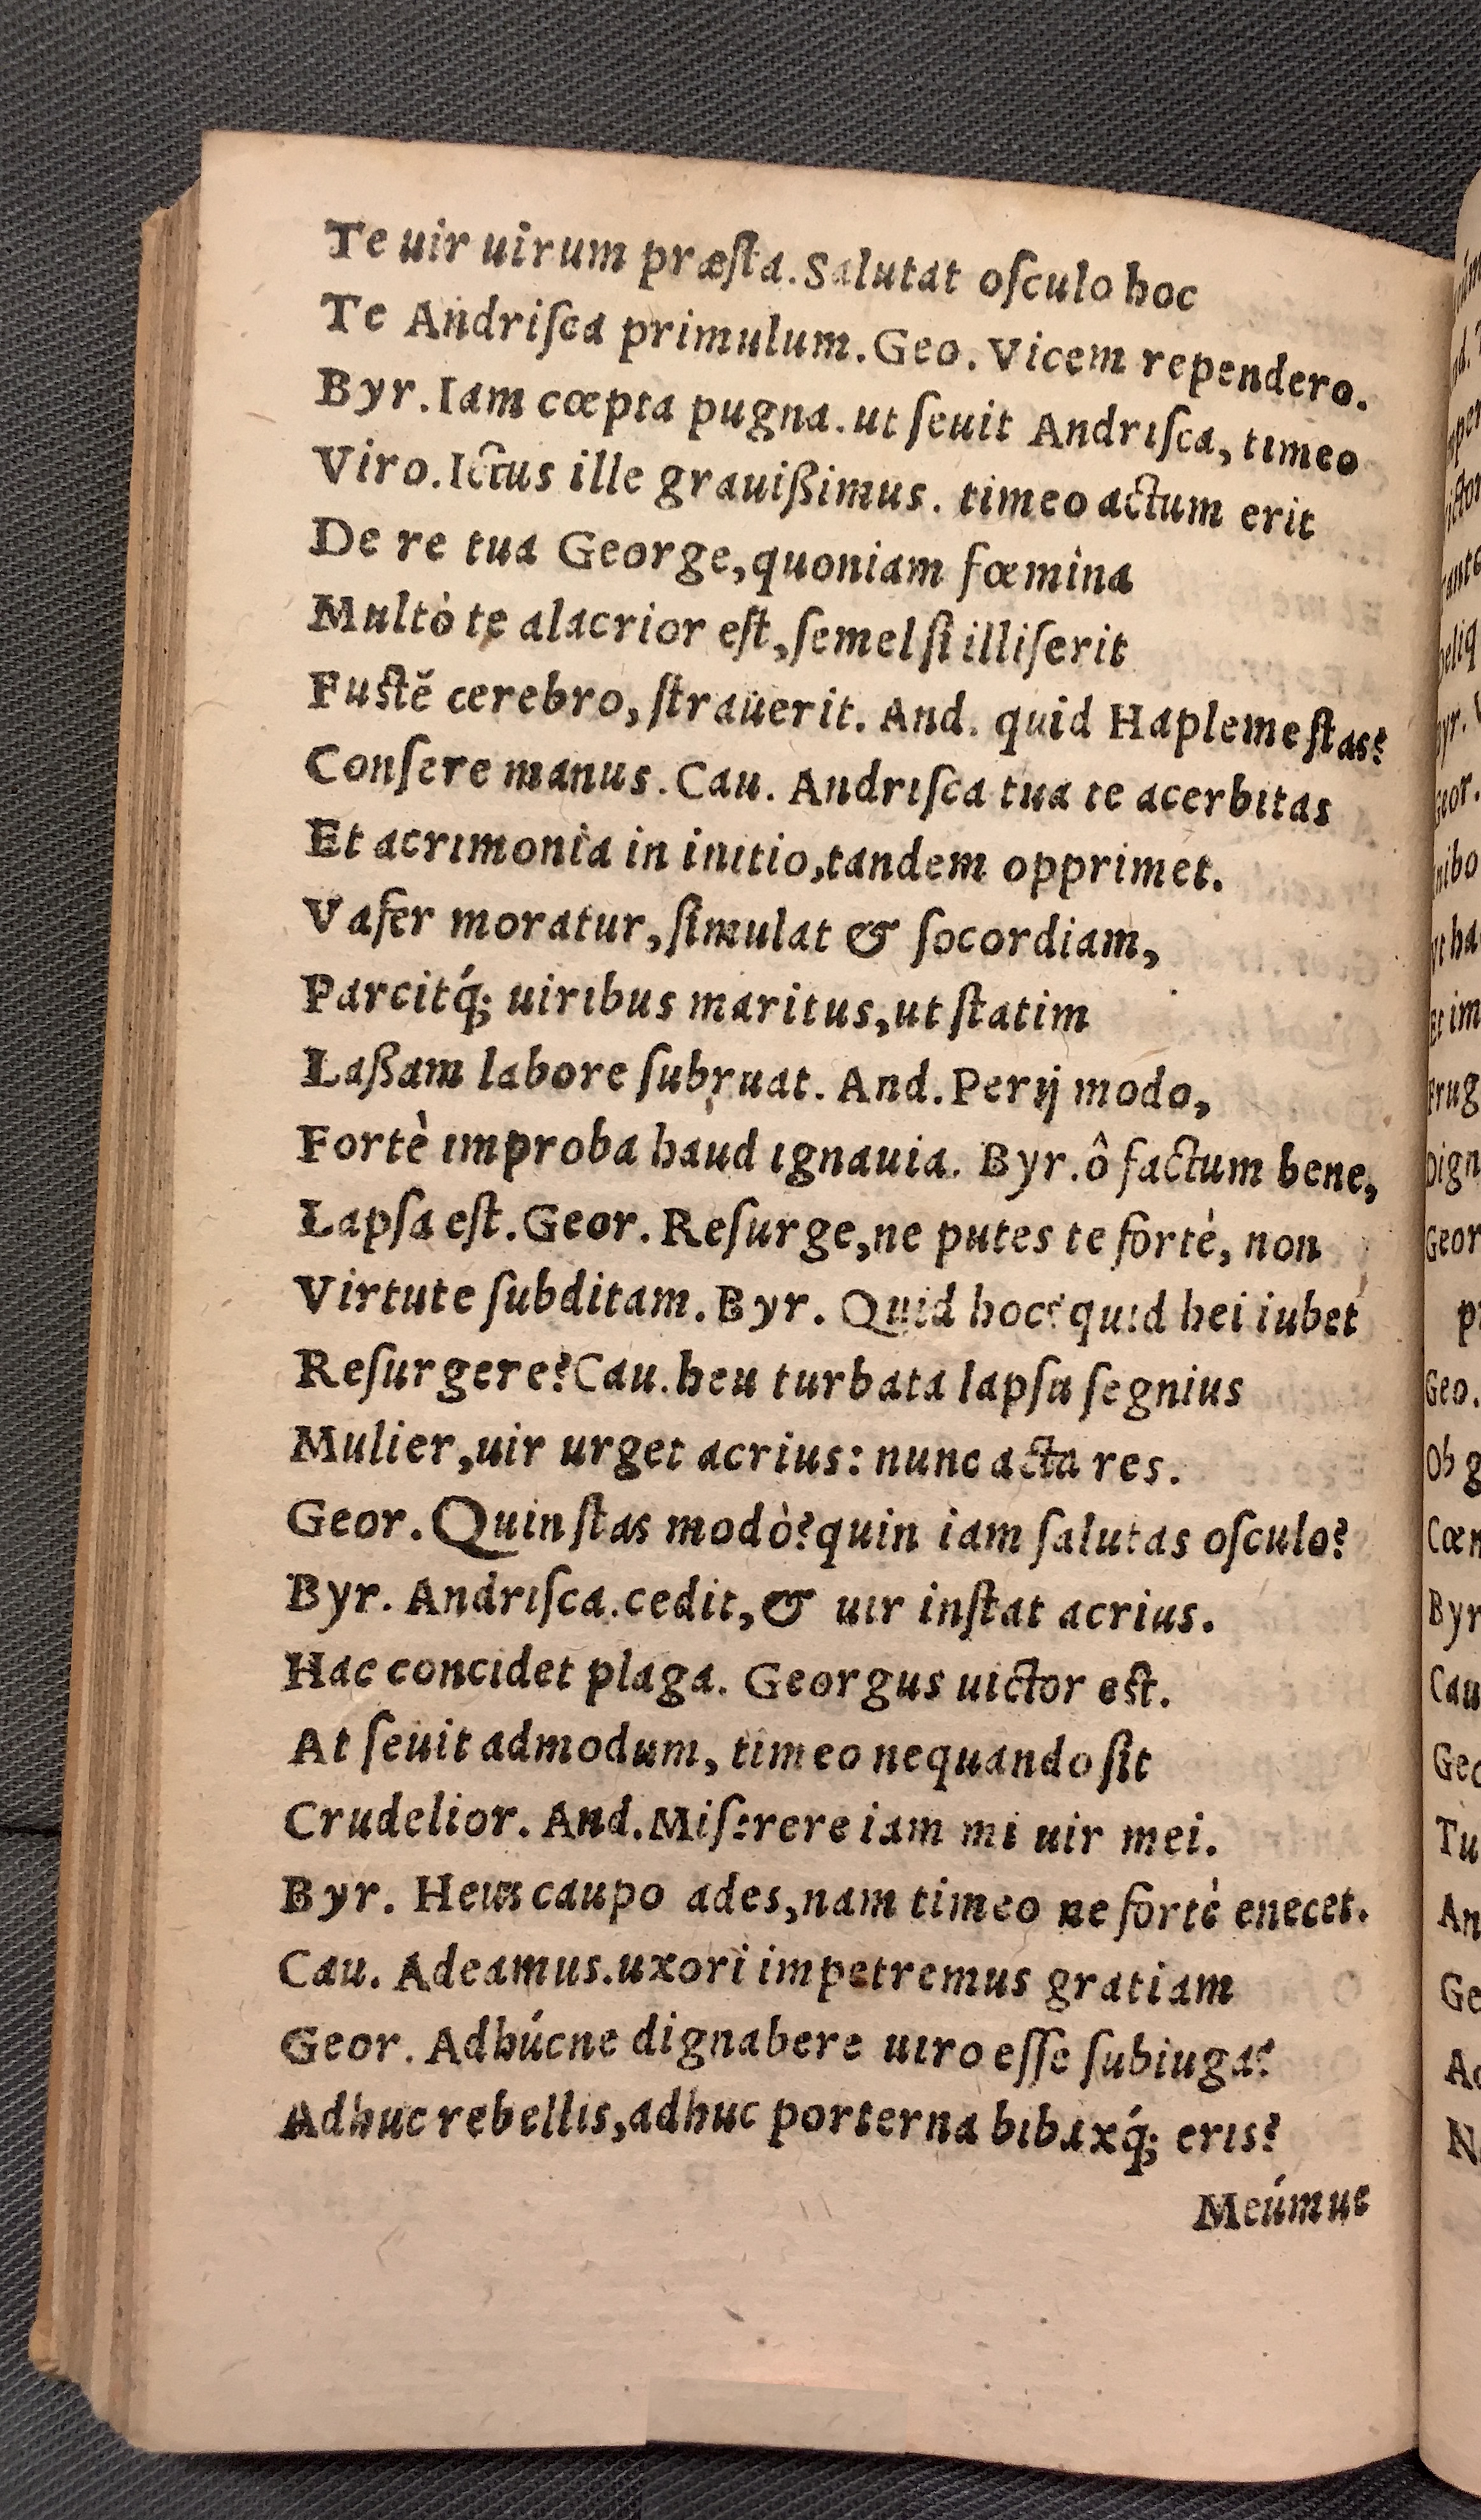 Te uir uirum præſta. Salutat oſculo hoc
Te Andriſca primulum. Geo. Vicem rependero.
Byr. Iam cœpta pugna. ut ſeuit Andriſca, timeo
Viro. Ictus ille grauißimus. timeo actum erit
De re tua George, quoniam fœmina
Multò te alacrior eſt, ſemel ſi illiſerit
Fuſtĕ cerebro, ſtrauerit. And. quid Hapleme ſtas?
Conſere manus. Cau. Andriſca tua te acerbitas
Et acrimonia in initio, tandem opprimet.
Vafer moratur, ſimulat & ſocordiam,
Parcitq́; uiribus maritus, ut ſtatim
Laßam labore ſubruat. And. Perij modo,
Fortè improba haud ignauia. Byr. ô factum bene,
Lapſa eſt. Geor. Reſurge, ne putes te fortè, non
Virtute ſubditam. Byr. Quid hoc? quid hei iubet
Reſurgere? Cau. heu turbata lapſu ſegnius
Mulier, uir urget acrius: nunc acta res.
Geor. Quin ſtas modò? quin iam ſalutas oſculo?
Byr. Andriſca. cedit, & uir inſtat acrius.
Hac concidet plaga. Georgus uictor eſt.
At ſeuit admodum, timeo nequando ſit
Crudelior. And. Miſerere iam mi uir mei.
Byr. Heus caupo ades, nam timeo ne fortè enecet.
Cau. Adeamus. uxori impetremus gratiam
Geor. Adhúcne dignabere uiro eſſe ſubiuga?
Adhuc rebellis, adhuc porterna bibaxq́; eris?
Meúmue